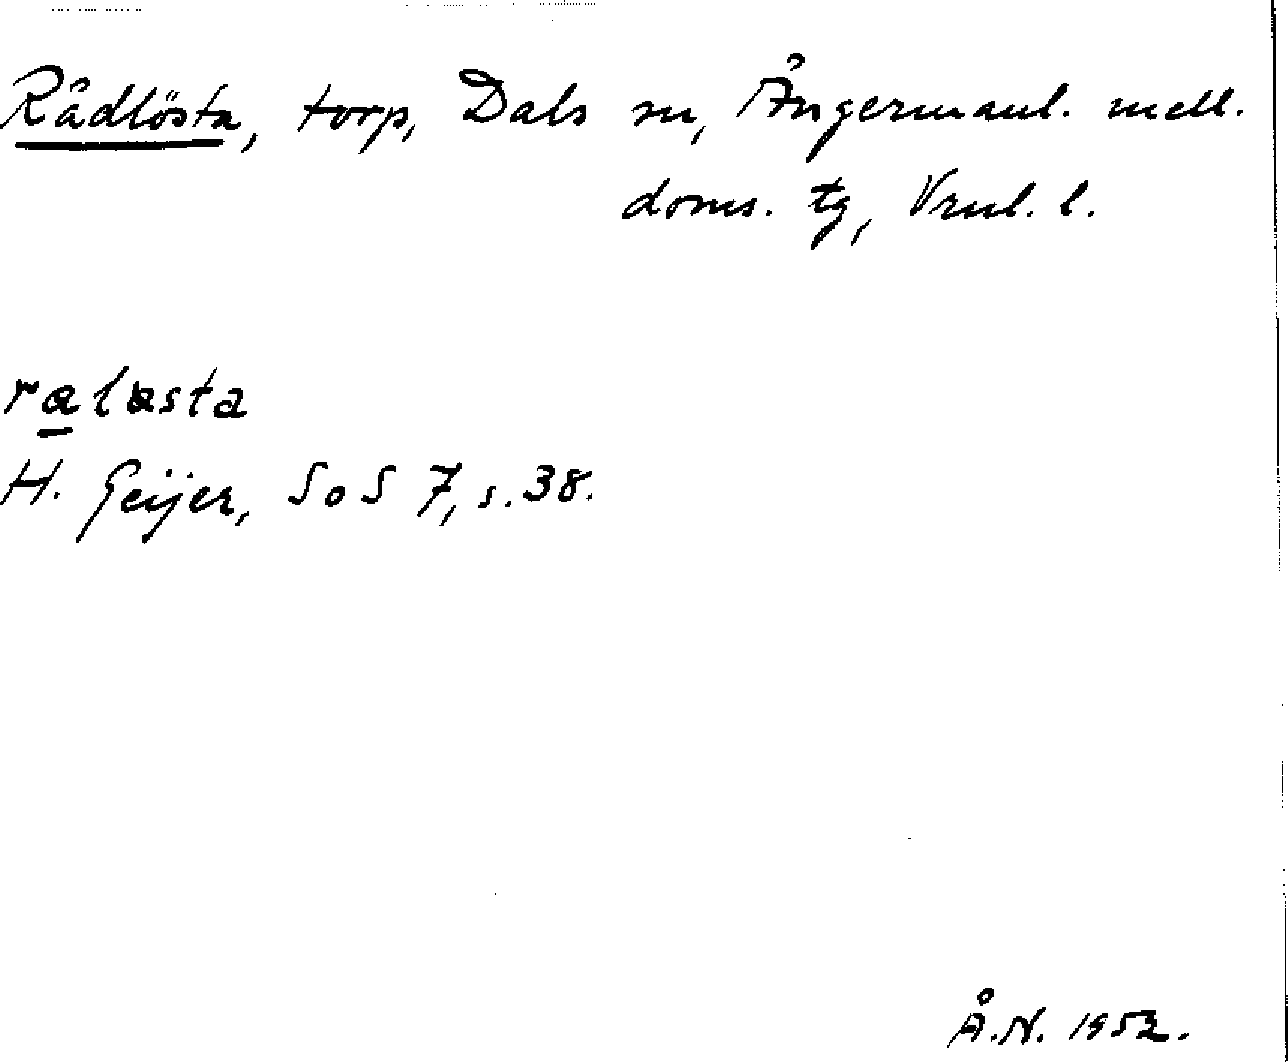 Rådlösta, torp, Dals sn, Ångermanl. mell.
doms. tg, Vrnl. l.
ralasta
H. Geijer, SoS 7, s. 38.
Å.N. 1952.